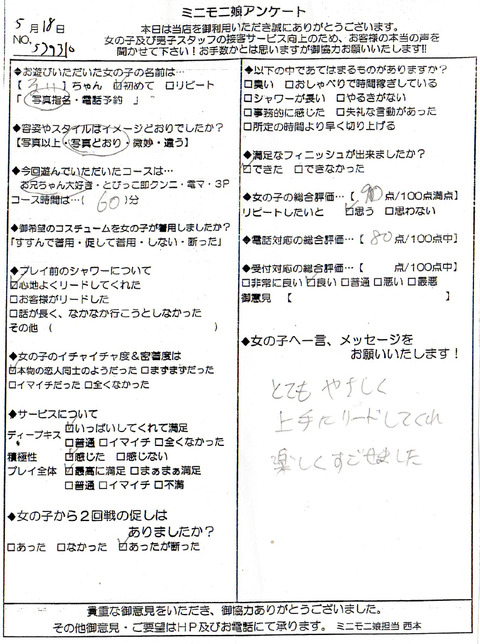 ミニモニ娘アンケート
5月18日
本日は当店を御利用いただき誠にありがとうございます。
NO.
女の子及び男子スタッフの接客サービス向上のため、お客様の本当の声を
聞かせて下さい!お手数かとは思いますが御協力お願いいたします!!
◆お遊びいただいた女の子の名前は…
【 】ちゃん ☑初めて □リピート
「 写真指名・電話予約 」
◆容姿やスタイルはイメージどおりでしたか?
【写真以上・写真どおり・微妙・違う】
◆今回遊んでいただいたコースは…
お兄ちゃん大好き・とびっこ即クンニ・電マ・3P
コース時間は…( 60 )分
◆御希望のコスチュームを女の子が着用しましたか?
「すすんで着用・促して着用・しない・断った」
◆プレイ前のシャワーについて
☑心地よくリードしてくれた
□お客様がリードした
□話が長く、なかなか行こうとしなかった
その他( )
◆女の子のイチャイチャ度&密着度は
☑本物の恋人同士のようだった □まずまずだった
□イマイチだった □全くなかった
◆サービスについて
ディープキス ☑いっぱいしてくれて満足
□普通 □イマイチ □全くなかった
積極性 ☑感じた □感じない
プレイ全体 ☑最高に満足 □まぁまぁ満足
□普通 □イマイチ □不満
◆女の子から2回戦の促しは
ありましたか?
□あった □なかった ☑あったが断った
◆以下の中であてはまるものがありますか?
□臭い □おしゃべりで時間稼ぎしている
□シャワーが長い □やるきがない
□事務的に感じた □失礼な言動があった
□所定の時間より早く切り上げる
◆満足なフィニッシュが出来ましたか?
☑できた □できなかった
◆女の子の総合評価…【 90 点/100点満点】
リピートしたいと ☑思う □思わない
◆電話対応の総合評価…【 80 点/100点中】
◆受付対応の総合評価…【 点/100点中】
□非常に良い ☑良い □普通 □悪い □最悪
御意見 【 】
◆女の子へ一言、メッセージを
お願いいたします!
とても やさしく
上手にリードしてくれ
楽しくすごせました
貴重な御意見をいただき、御協力ありがとうございました。
その他御意見・ご要望はHP及びお電話にて承ります。 ミニモニ娘担当 西本